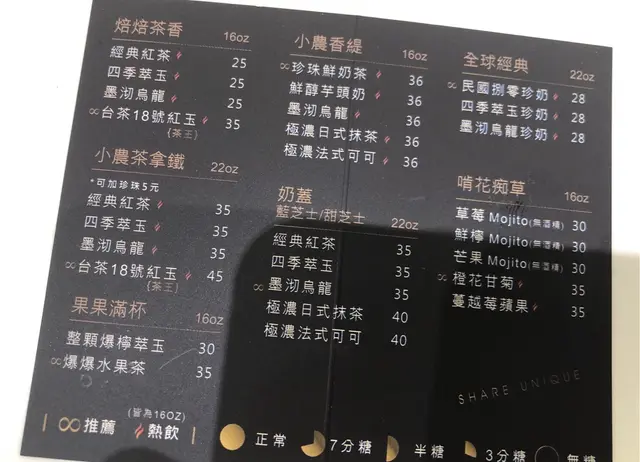 焙焙茶香 16oz
經典紅茶 25
四季萃玉 25
墨沏烏龍 25
∞台茶18號紅玉 35
(茶王)
小農茶拿鐵 22oz
*可加珍珠5元
經典紅茶 35
四季萃玉 35
墨沏烏龍 35
∞台茶18號紅玉 45
(茶王)
果果滿杯 16oz
整顆爆檸萃玉 30
∞爆爆水果茶 35
小農香緹 16oz
∞珍珠鮮奶茶 36
鮮醇芋頭奶 36
墨沏烏龍 36
極濃日式抹茶 36
極濃法式可可 36
奶蓋
藍芝士/甜芝士 22oz
經典紅茶 35
四季萃玉 35
∞墨沏烏龍 35
極濃日式抹茶 40
極濃法式可可 40
全球經典 22oz
∞民國捌零珍奶 28
四季萃玉珍奶 28
墨沏烏龍珍奶 28
啃花痴草 16oz
草莓 Mojito(無酒精) 30
鮮檸 Mojito(無酒精) 30
芒果 Mojito(無酒精) 30
∞橙花甘菊 35
蔓越莓蘋果 35
SHARE UNIQUE
∞推薦 (皆為16OZ) 熱飲
正常 7分糖 半糖 3分糖 無糖